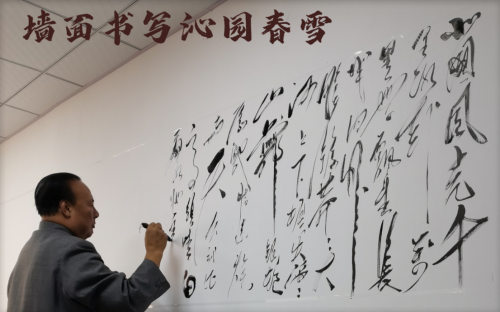 墙面书写沁园春雪
北國風光千
里冰封万
里雪飘望长
城内外惟
馀莽莽大
河上下顿失滔滔
山舞银蛇
原驰蜡象欲
与天公试比
高须晴日